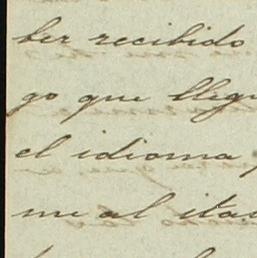 ber recibido
go que llegu
el idioma
me al ita